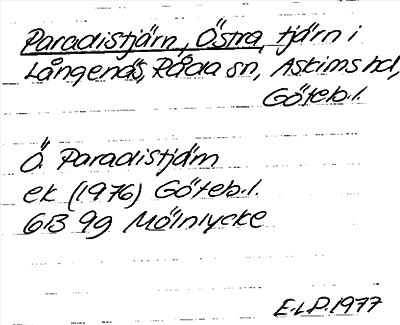 Paradistjärn, Östra, tjärn i
Långenäs, Råda sn, Askims hd,
Göteb.l.
Ö. Paradistjärn
ek (1976) Göteb.l.
6B 9g Mölnlycke
E.L.P. 1977